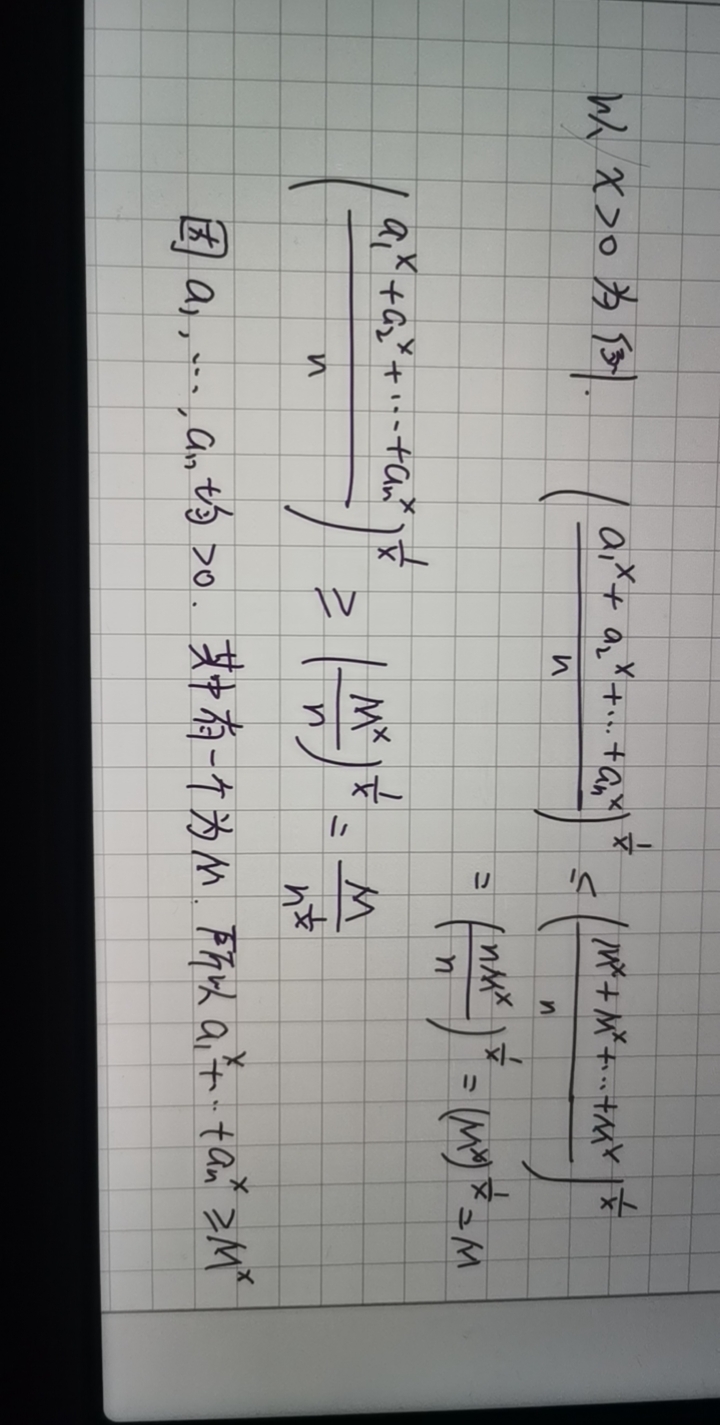 以 x>0 为例. (\frac{a_1^x+a_2^x+\cdots+a_n^x}{n})^{\frac{1}{x}} ≤ (\frac{M^x+M^x+\cdots+M^x}{n})^{\frac{1}{x}}
= (\frac{nM^x}{n})^{\frac{1}{x}} = (M^x)^{\frac{1}{x}} = M
(\frac{a_1^x+a_2^x+\cdots+a_n^x}{n})^{\frac{1}{x}} ≥ (\frac{M^x}{n})^{\frac{1}{x}} = \frac{M}{n^{\frac{1}{x}}}
因 a_1, ..., a_n 均 >0. 其中有一个为 M. 所以 a_1^x+\cdots+a_n^x ≥ M^x